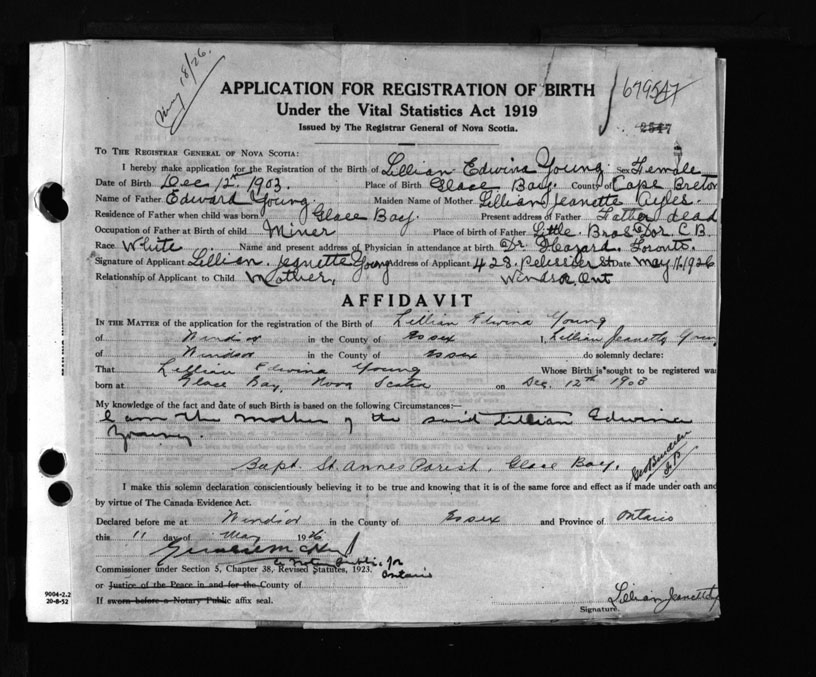 May 18/26.
APPLICATION FOR REGISTRATION OF BIRTH
679547
Under the Vital Statistics Act 1919
2547
Issued by The Registrar General of Nova Scotia.
To The Registrar General of Nova Scotia:
I hereby make application for the Registration of the Birth of Lillian Edwina Young Sex Female
Date of Birth Dec 12th 1903. Place of Birth Glace Bay. County of Cape Breton
Name of Father Edward Young. Maiden Name of Mother Lillian Jeanette
Residence of Father when child was born Glace Bay. Present address of Father Father dead
Occupation of Father at Birth of child Miner Place of birth of Father Little Bras Dor C.B.
Race White Name and present address of Physician in attendance at birth Dr. Hazard. Toronto.
Signature of Applicant Lillian. Jeanette Young Address of Applicant 428. Pelissier St Date May 11. 1926
Relationship of Applicant to Child. Mother. Windsor, Ont
AFFIDAVIT
In the Matter of the application for the registration of the Birth of Lillian Edwina Young
of Windsor in the County of Essex I, Lillian Jeanette Young
of Windsor in the County of Essex do solemnly declare:
That Lillian Edwina Young Whose Birth is sought to be registered was
born at Glace Bay, Nova Scotia on Dec. 12th 1903
My knowledge of the fact and date of such Birth is based on the following Circumstances:—
I am the mother of the said Lillian Edwina
Young.
Bapt. St. Annes Parish, Glace Bay.
I make this solemn declaration conscientiously believing it to be true and knowing that it is of the same force and effect as if made under oath and
by virtue of The Canada Evidence Act.
Declared before me at Windsor in the County of Essex and Province of Ontario
this 11 day of May 1926
A Notary Public, for
Commissioner under Section 5, Chapter 38, Revised Statutes, 1923. Ontario
or Justice of the Peace in and for the County of
If sworn before a Notary Public affix seal.
Lillian Jeanette
Signature.
9004-2.2
20-8-52